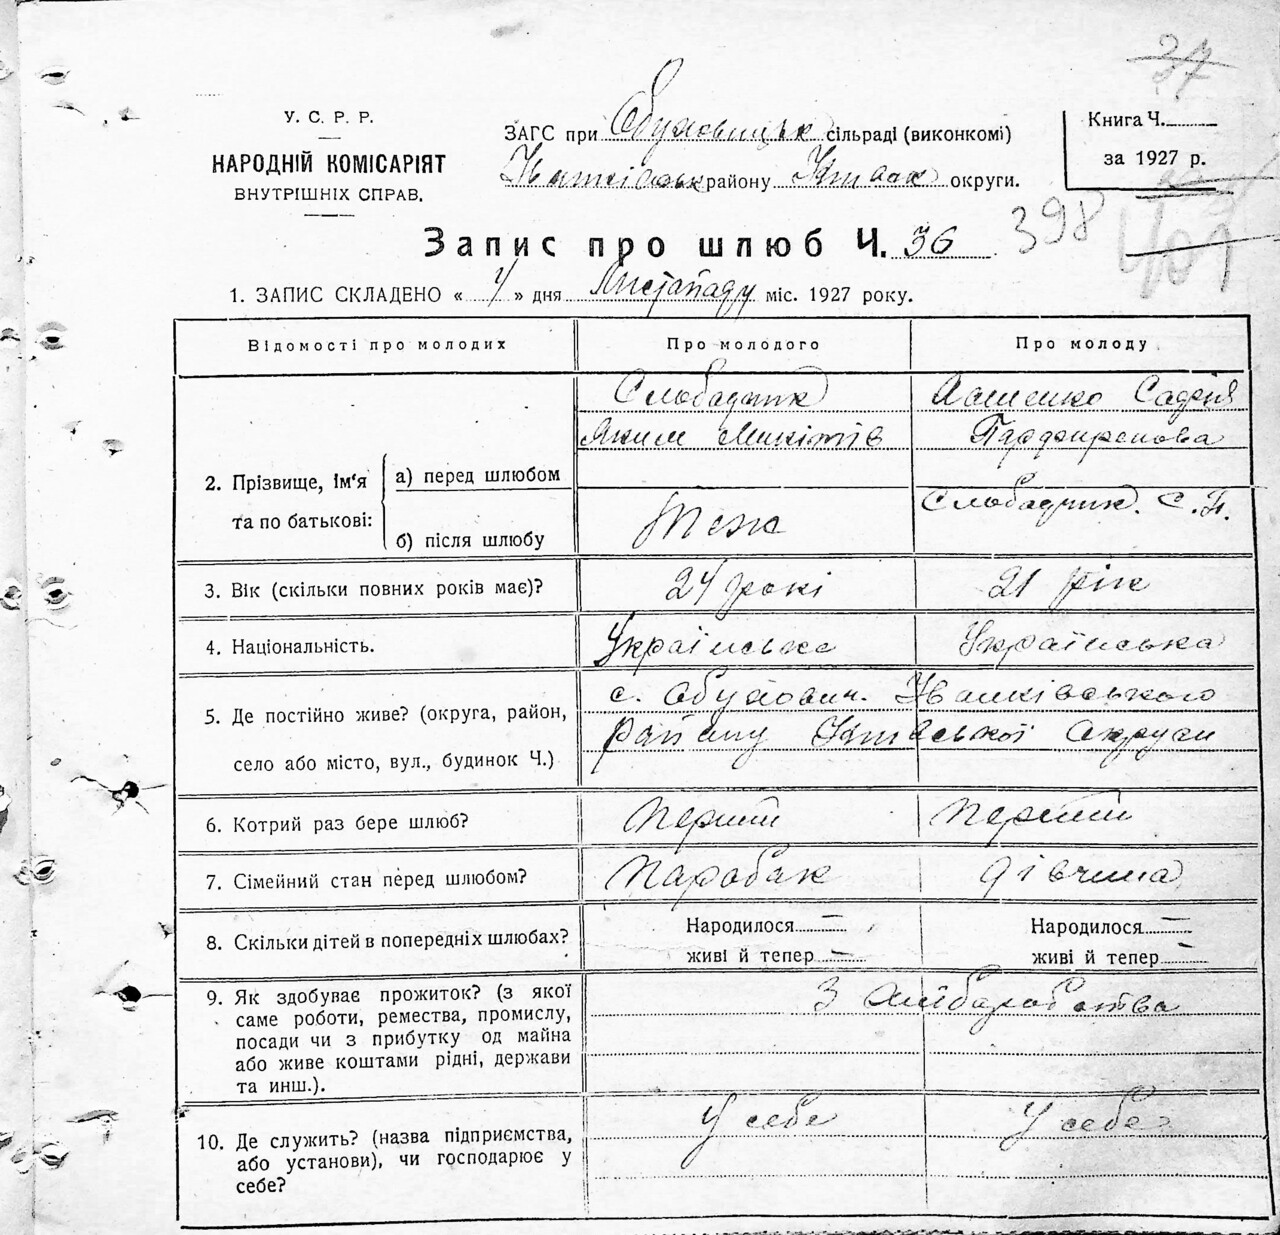 37
У. С. Р. Р.
НАРОДНІЙ КОМІСАРІЯТ
ВНУТРІШНІХ СПРАВ.
ЗАГС при Обуховицьк сільраді (виконкомі)
Іванківськ району Київськ округи.
Книга Ч.
за 1927 р.
398
401
Запис про шлюб Ч. 36
1. ЗАПИС СКЛАДЕНО « » дня Листопаду міс. 1927 року.
Відомості про молодих Про молодого Про молоду
Слободчик
Яким Микітів
Софія
Парфиронова
2. Прізвище, ім'я та по батькові:
а) перед шлюбом
б) після шлюбу
Теж
Слободчик. С. П.
3. Вік (скільки повних років має)? 24 рокі 21 рік
4. Національність. Українська Українська
5. Де постійно живе? (округа, район, село або місто, вул., будинок Ч.)
с. Обухович. Іванківського
району Київської Округи
6. Котрий раз бере шлюб? перший перший
7. Сімейний стан перед шлюбом? Паробак дівчина
8. Скільки дітей в попередніх шлюбах?
Народилося — Народилося —
живі й тепер — живі й тепер —
9. Як здобуває прожиток? (з якої
саме роботи, ремества, промислу,
посади чи з прибутку од майна
або живе коштами рідні, держави
та инш.).
З хліборобства
10. Де служить? (назва підприємства,
або установи), чи господарює у
себе?
У себе У себе